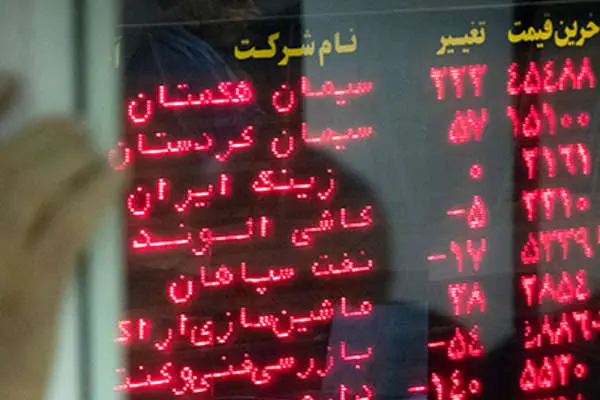 نام شرکت تغییر خرین قیمت
سیمان هگمتان ۲۲۳ ۴۵۴۸۸
سیمان کردستان ۵۷ ۱۵۱۰۰
زینگ ایران ۰ ۲۱۶۱
کاشی الوند -۵ ۲۲۱۰
نفت سپاهان -۱۷ ۵۲۳۹
ماشین‌سازی‌اراک ۲۸ ۲۸۵۴
بازرسی‌فنی‌وکنت -۵۴
-۱۴۰ ۵۵۲۰